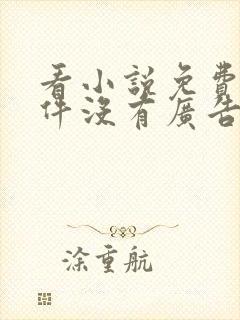 看小說免費
件沒有廣告
涂重航